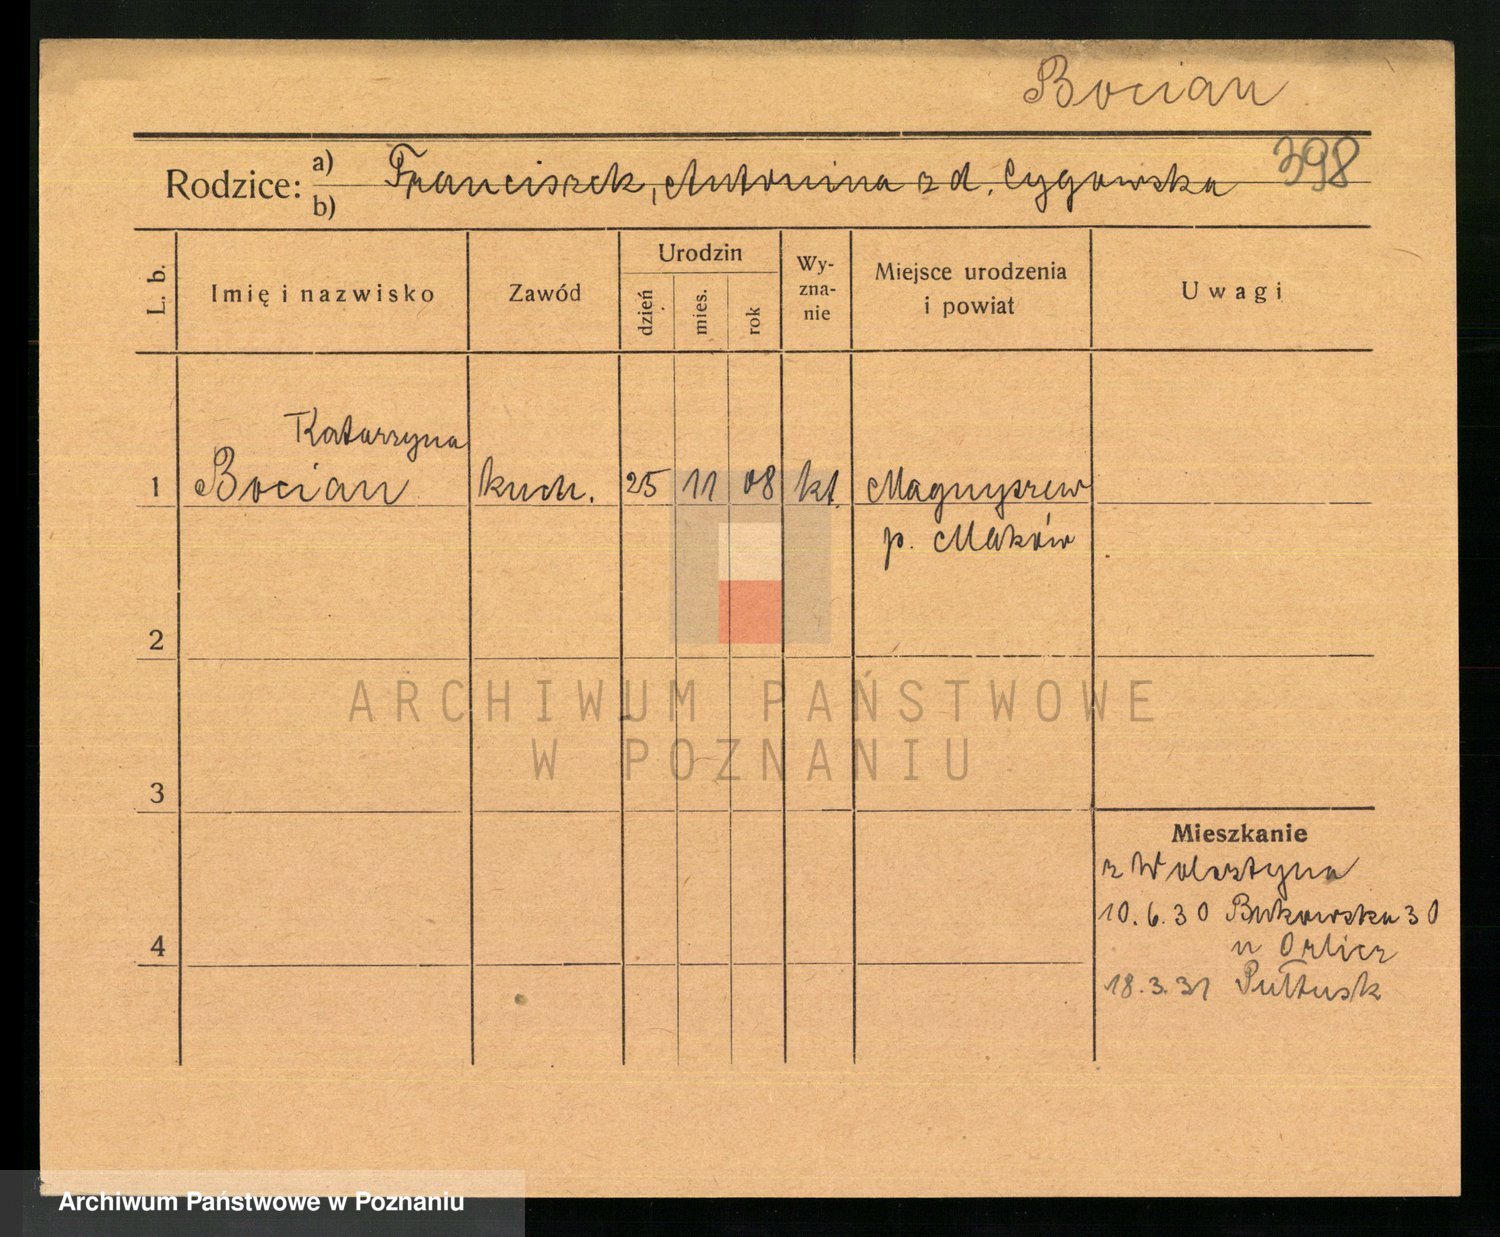 Bocian
398
Rodzice: a) Franciszek, Antonina z d. Cygowska
b)
L. b.
Imię i nazwisko
Zawód
Urodzin
dzień
mies.
rok
Wy-
zna-
nie
Miejsce urodzenia
i powiat
Uwagi
Katarzyna
1 Bocian kuch. 25 11 08 kt. Magnuszew
p. Maków
2
ARCHIWUM PAŃSTWOWE
W POZNANIU
3
Mieszkanie
z Wolsztyna
10.6.30 Bukowska 30
4
u Orlicz
18.3.31 Pułtusk
Archiwum Państwowe w Poznaniu